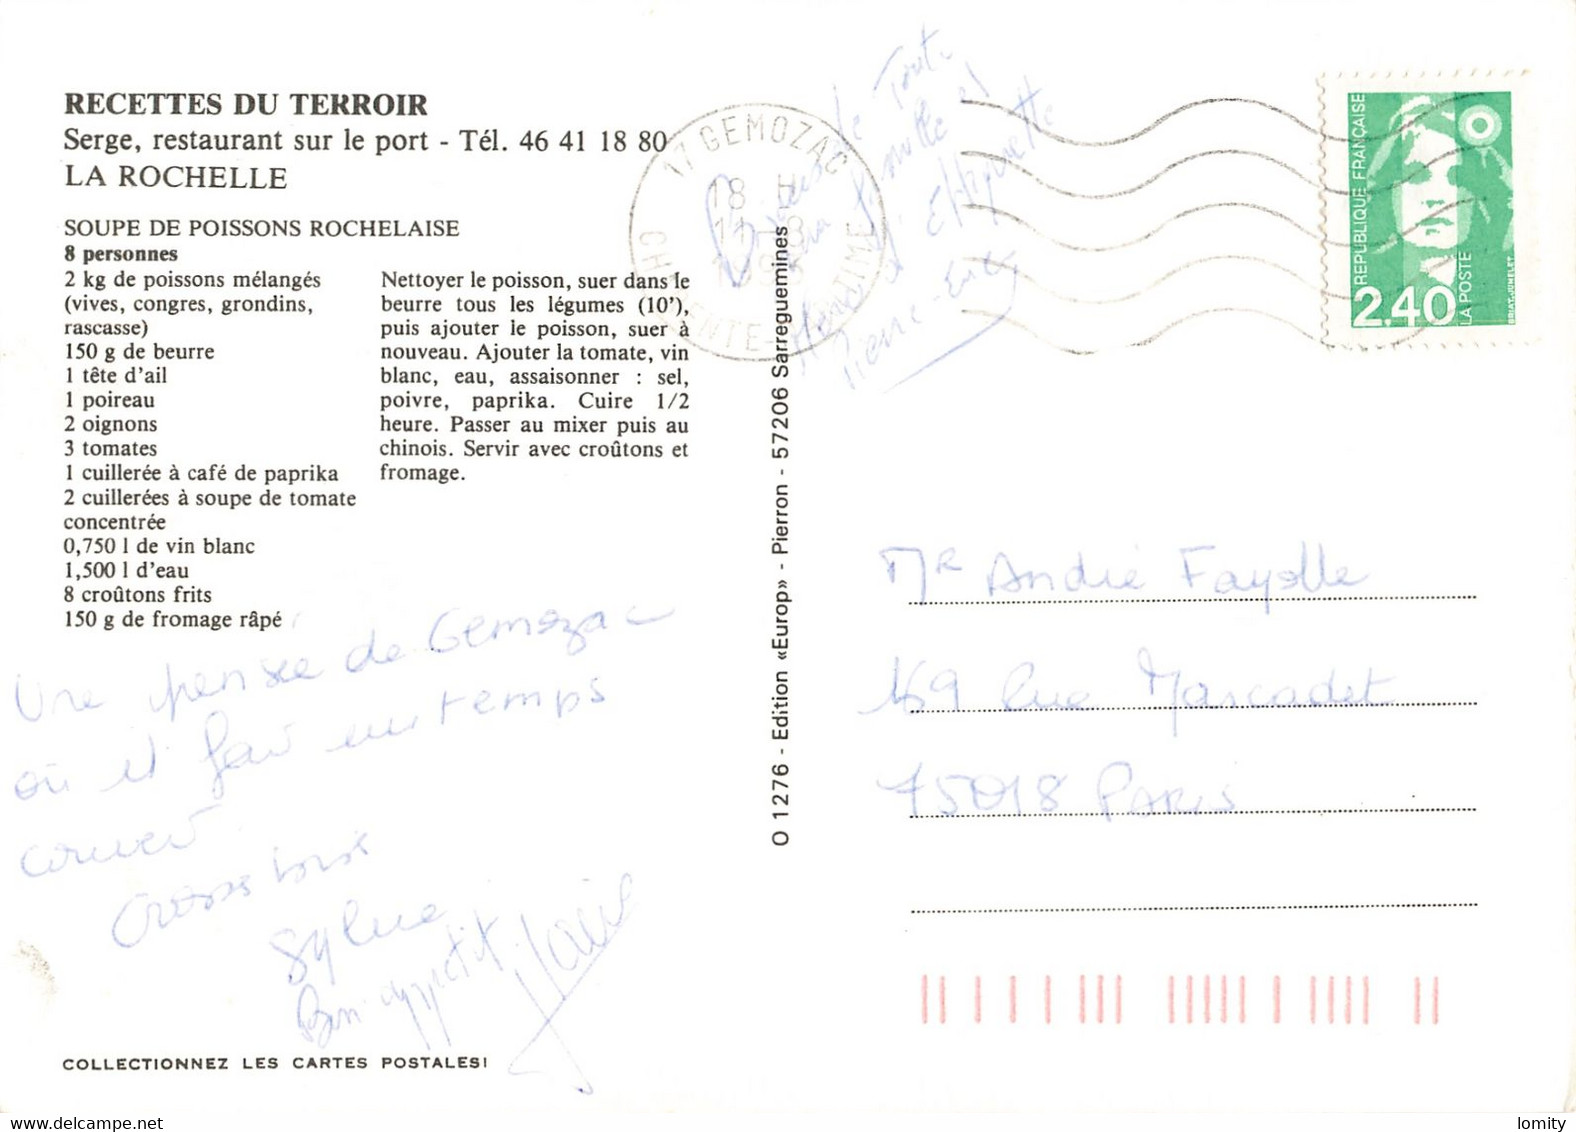 RECETTES DU TERROIR
Serge, restaurant sur le port - Tél. 46 41 18 80
LA ROCHELLE
SOUPE DE POISSONS ROCHELAISE
8 personnes
2 kg de poissons mélangés
(vives, congres, grondins,
rascasse)
150 g de beurre
1 tête d'ail
1 poireau
2 oignons
3 tomates
1 cuillerée à café de paprika
2 cuillerées à soupe de tomate
concentrée
0,750 l de vin blanc
1,500 l d'eau
8 croûtons frits
150 g de fromage râpé
Nettoyer le poisson, suer dans le
beurre tous les légumes (10'),
puis ajouter le poisson, suer à
nouveau. Ajouter la tomate, vin
blanc, eau, assaisonner : sel,
poivre, paprika. Cuire 1/2
heure. Passer au mixer puis au
chinois. Servir avec croûtons et
fromage.
Une pensée de Gemozac
où il fait un temps
couvert
Grosses bises
Sylvie
Bon appetit
COLLECTIONNEZ LES CARTES POSTALES!
O 1276 - Edition «Europ» - Pierron - 57206 Sarreguemines
17 GEMOZAC
18 H
CHARENTE-MARITIME
Bises de Toute
la famille et
d'Etiquette
Pierre-Eric
RÉPUBLIQUE FRANÇAISE
2.40
LA POSTE
BRIAT.JUMELET
Mr André Fayolle
169 rue Marcadet
75018 PARIS
lomity